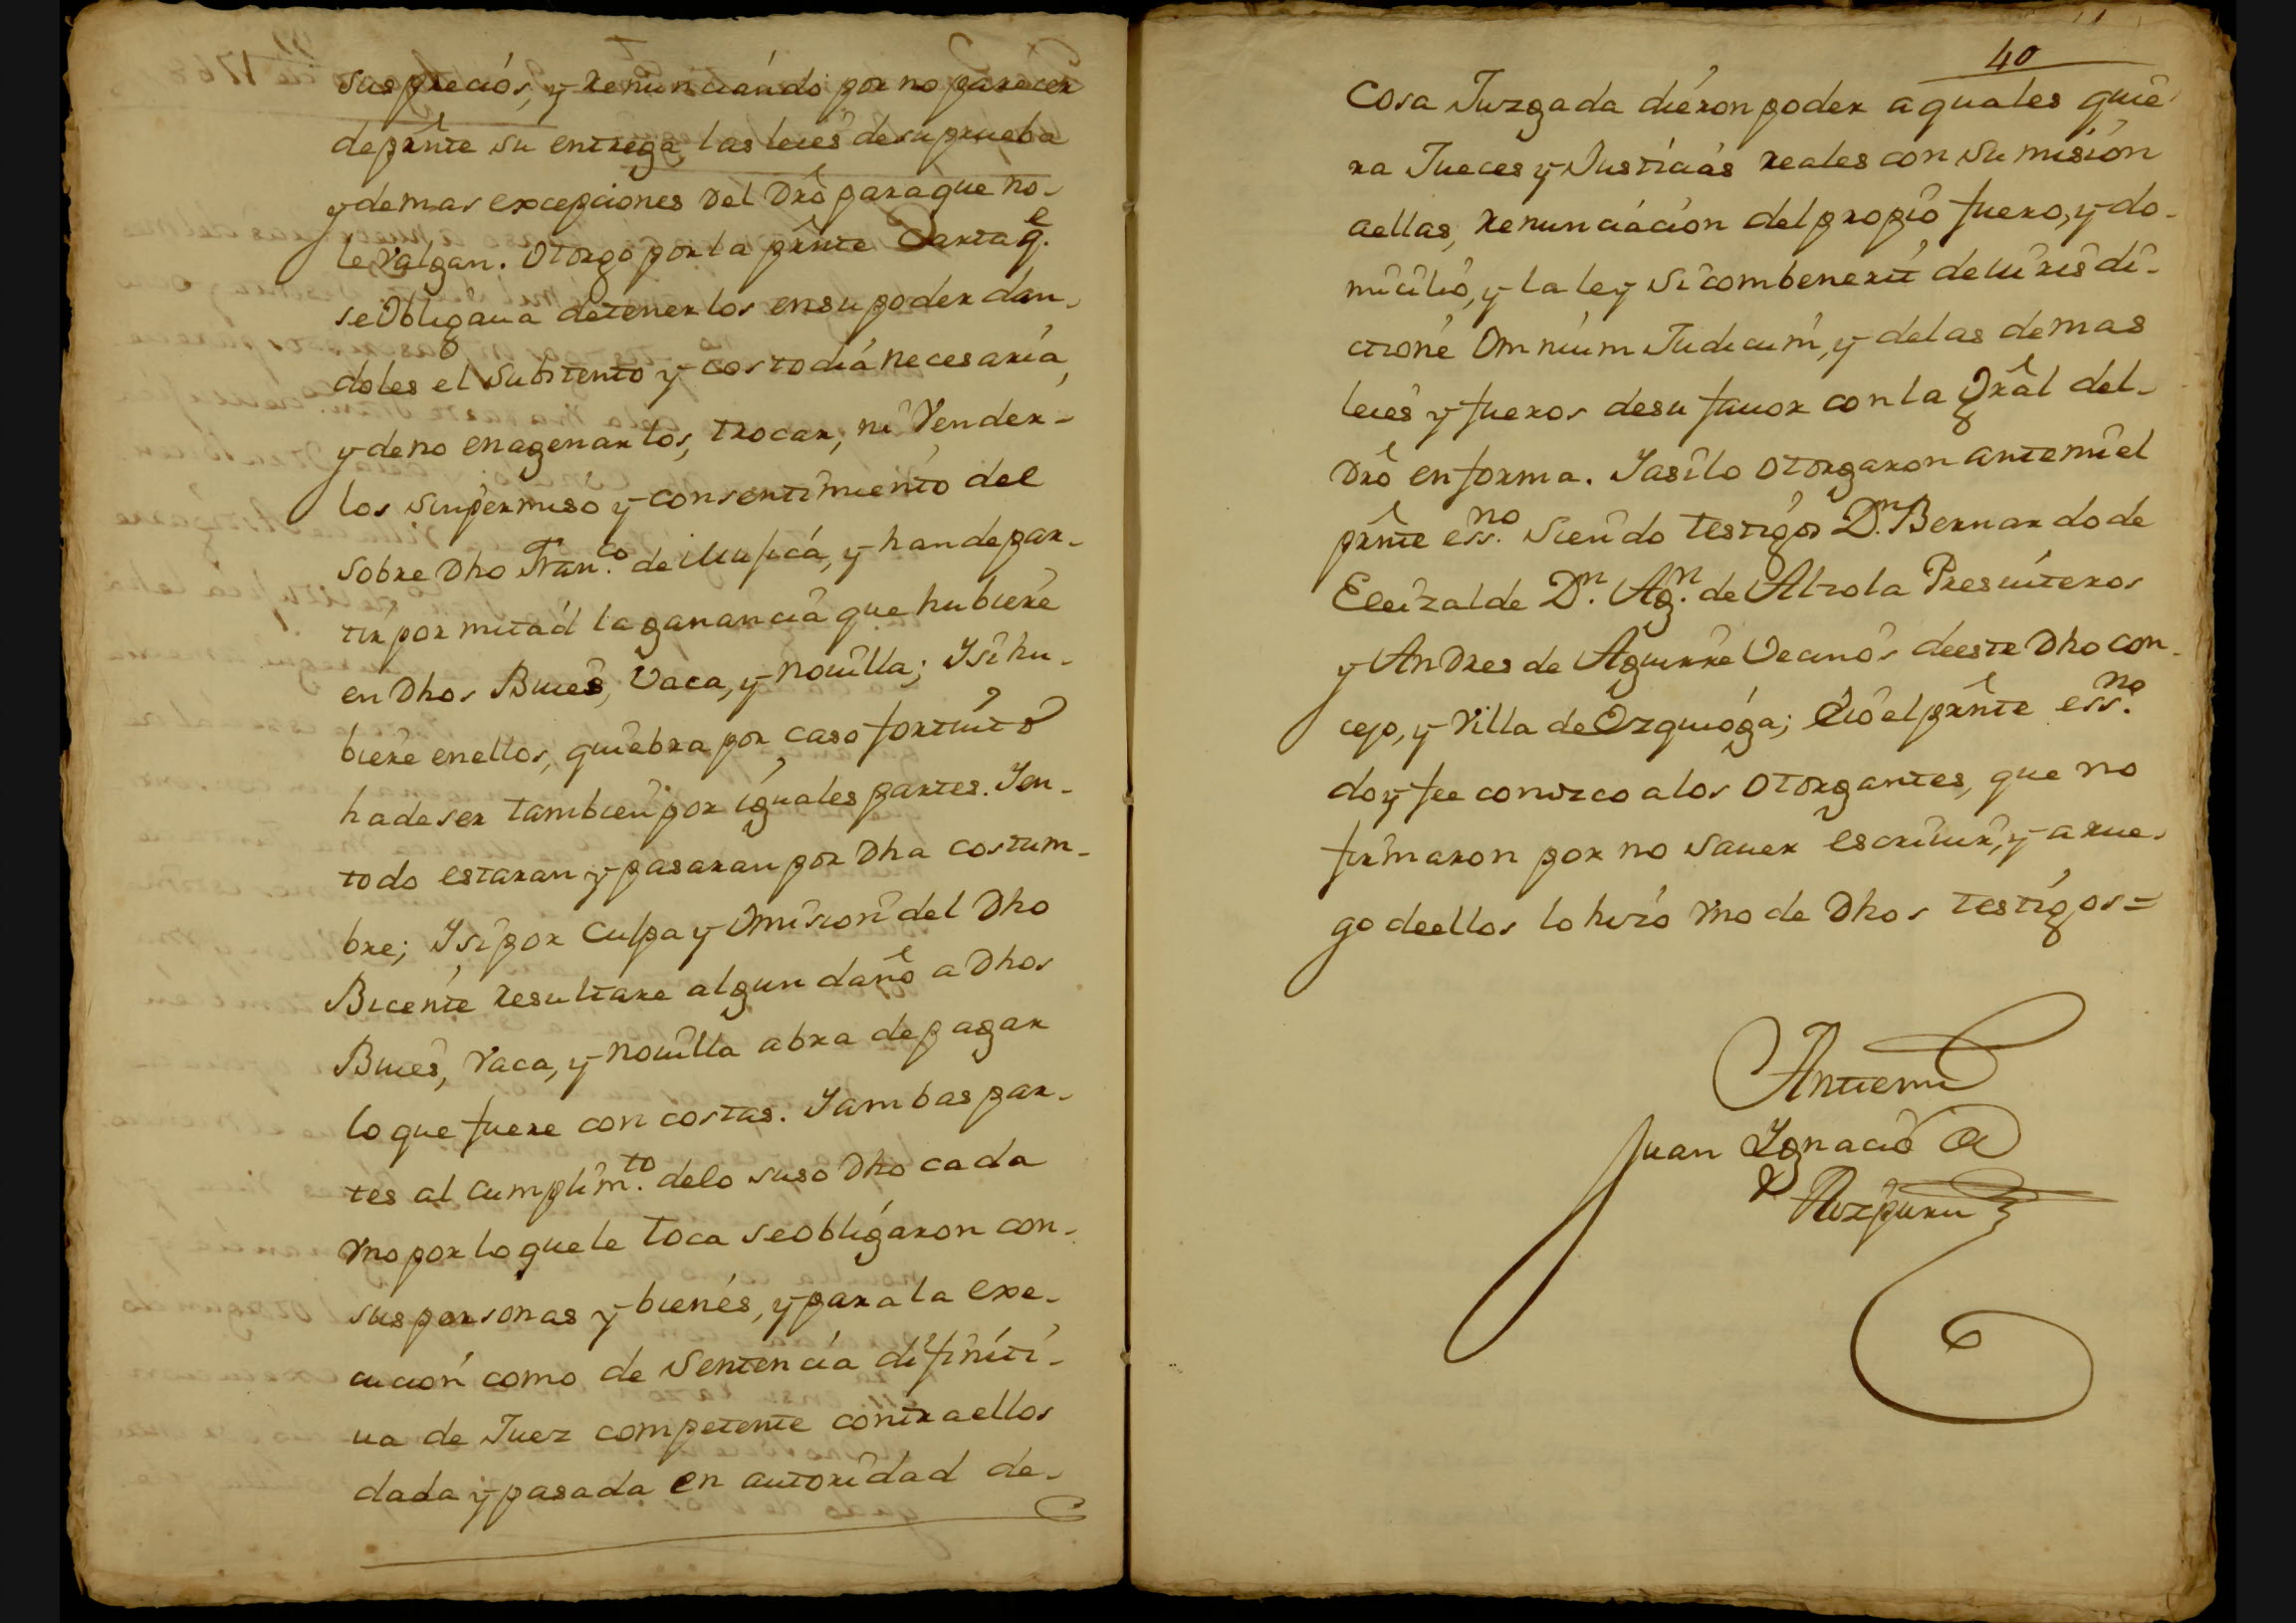 sus preciós, y renunciándo por no parecer
de prnte su entrega las leies de su prueba
y demas excepciones Del Dro para que no-
le Valgan. Otorgo por la prnte Carta q.e
se Obligaua detenerlos en su poder dan-
doles el Substento y costodiá necesaria,
y de no enagenarlos, trocar, ni Vender-
los sin permiso y consentimiento del
sobre Dho Fran.co de Mujicá, y han de par-
tir por mitad la ganancia que hubiere
en Dhos Bueies, Vaca, y nouilla; Y si hu-
biere en ellos, quiebra por caso fortuito
ha de ser tambien por iguales partes. Y en-
todo estaran y pasaran por Dha costum-
bre; Y si por Culpa y Omision del Dho
Bicente resultare algun daño a Dhos
Bueies, Vaca, y nouilla abra de pagar
lo que fuere con costas. Y ambas par-
tes al Cumplim.to delo suso Dho cada
Vno por lo que le toca se obligaron con-
sus personas y bienés, y para la exe-
cucion como de Sentencia difiniti-
ua de Juez competente contra ellos
dada y pasada en autoridad de-
40
Cosa Juzgada diéron poder a quales quie
ra Jueces y Justiciás reales con Sumisión
aellas, renunciáción del propio fuero, y do-
micilio, y la ley Si combenerit de iuris di-
ctione Omnium Judicum, y delas demas
leies y fueros desu fauor con la Gral del-
Dro en forma. Y asi lo otorgaron ante mi el
prnte ess.no siendo testigos D.n Bernardo de
Eleizalde D.n Ag.n de Altola Presuiteros
y Andres de Aguirre Vecinos deeste Dho con-
cejo, y Villa de Ezquioga; é io el prnte ess.no
doy fee conozco alos Otorgantes, que no
firmaron por no sauer escriuir, y a rue-
go deellos lo hizo Vno de Dhos testigos=
Ante mi
Juan Ygnacio de
Aizpuru